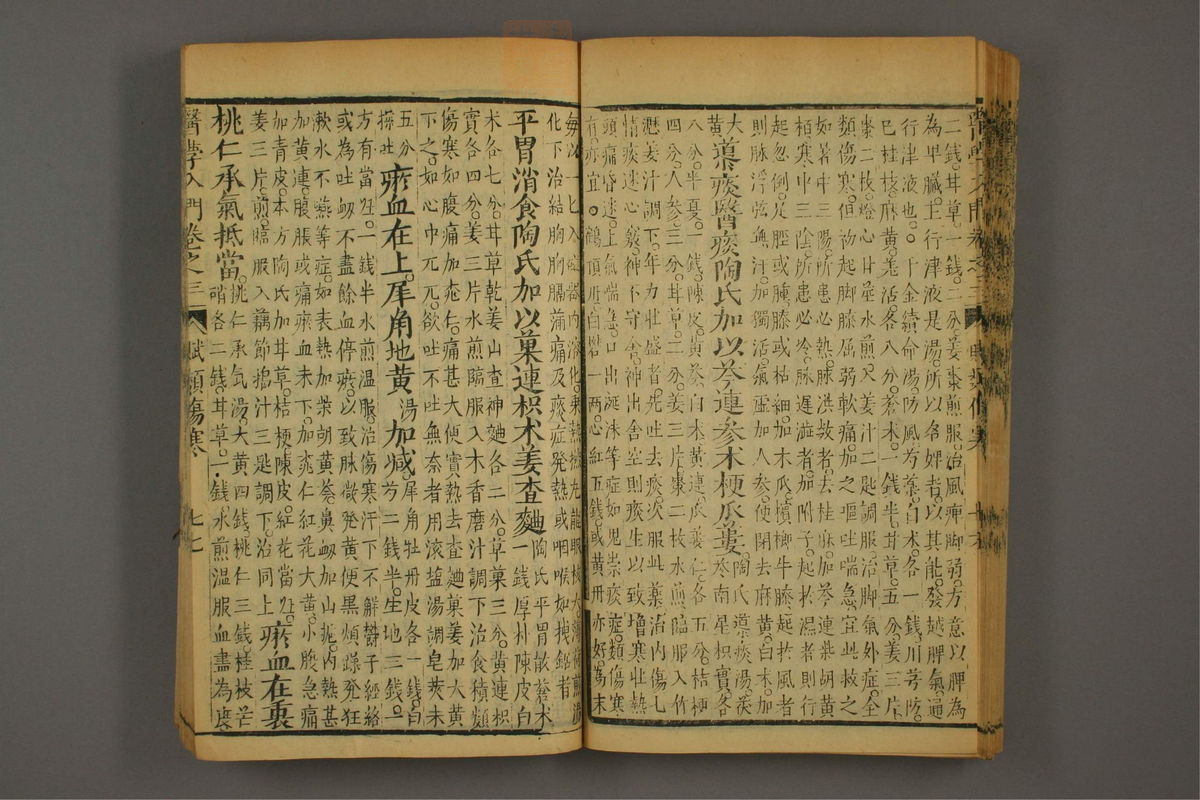 二錢甘草一錢二分姜棗煎服治風痺脚弱方意以脾為
為卑臟上行津液是湯所以名婢者以其能發越脾氣通
行津液也于金續命湯防風芍藥白朮各一錢川芎防
已桂枝麻黃羌活各八分蒼朮一錢半甘草五分姜三片
棗二枚燈心廿莖水煎入姜汁二匙調服治脚氣外症全
類傷寒但初起脚膝屈弱軟痛加之嘔吐喘急宜此救之
如暑中三陽所患必熱脉洪數者去桂麻加芩連柴胡黃
栢寒中三陰所患必冷脉遲澁者加附子起於濕者則行
起忽倒足脛或腫膝或枯細加木瓜檳榔牛膝起於風者
則脉浮弦無汗加獨活氣虛加人參便閉去麻黃白朮加
大黃
導痰醫痰陶氏加以芩連參朮梗瓜蔞陶氏導痰湯茯苓南星枳實各
八分半夏一錢陳皮黃芩白朮黃連瓜蔞仁各五分桔梗
四分人參三分甘草二分姜三片棗二枚水煎臨服入竹
瀝姜汁調下年力壯盛者先吐去痰次服此藥治內傷七
情痰迷心竅神不守舍神出舍空則痰生以致增寒壯熱
頭痛昏迷上氣喘急口出涎沫等症如鬼祟痰症類傷寒
有亦宜鶴頂丹白礬一兩心紅五錢或黃丹亦好為末
每次一匕入磁器內溶化乘熱
化下治結胸胸膈滿痛及痰症発熱或咽喉如拽鋸者
平胃消食陶氏加以菓連枳朮姜查麯陶氏平胃散蒼朮一錢厚朴陳皮白
朮各七分甘草乾姜山查神麯各二分草菓三分黃連枳
實各四分姜三片水煎臨服入木香磨汁調下治食積類
傷寒如腹痛加桃仁痛甚大便實熱去查麯菓姜加大黃
下之如心中兀兀欲吐不吐無奈者用滾塩湯調皂莢末
五分探吐瘀血在上犀角地黃湯加減犀角牡丹皮各一錢白芍二錢半生地三錢一
方有當歸一錢半水煎溫服治傷寒汗下不解鬱于經絡
或為吐衂不盡餘血停瘀以致脉微発黃便黑煩躁発狂
漱水不嚥等症如表熱加柴胡黃芩鼻衂加山梔內熱甚
加黃連腹脹或痛瘀血未下加桃仁紅花大黃小腹急痛
加青皮本方陶氏加甘草桔梗陳皮紅花當歸
姜三片煎臨服入藕節搗汁三匙調下治同上瘀血在裏
桃仁承氣抵當桃仁承氣湯大黃四錢桃仁三錢桂枝芒硝各二錢甘草一錢水煎溫服血盡為度
醫學入門卷之三 賦類傷寒 七七